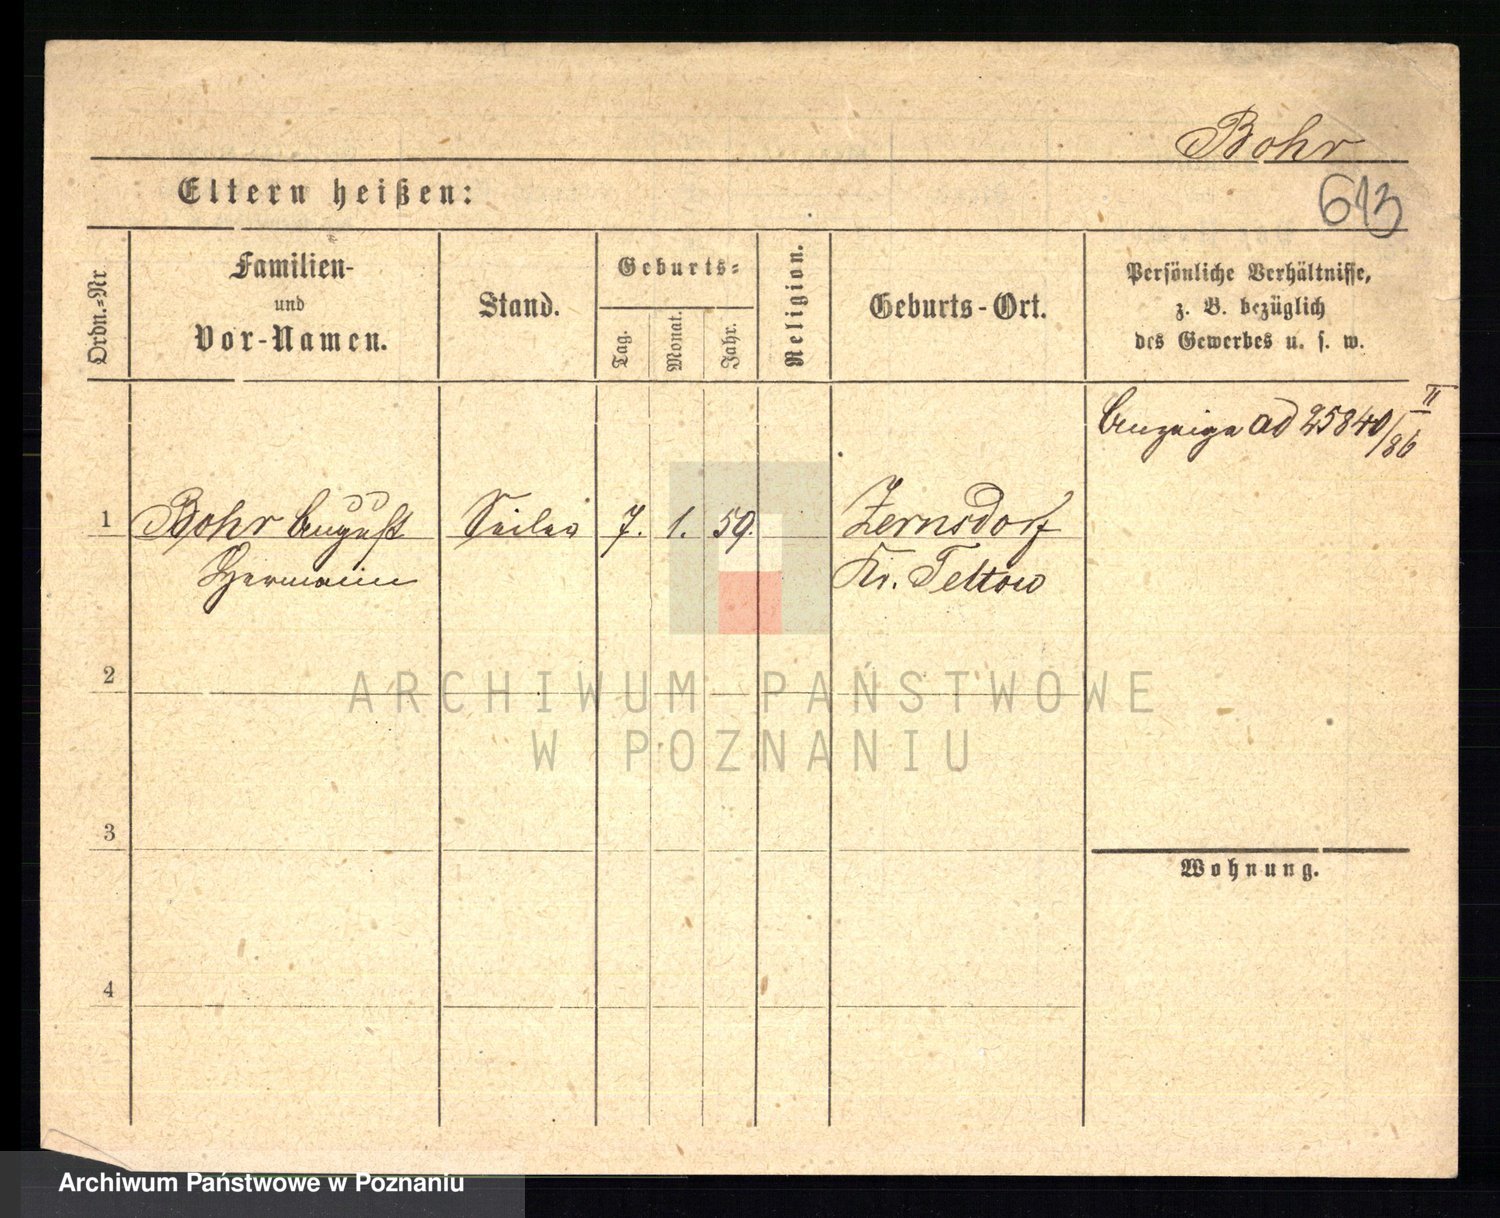 Bohr
Eltern heißen:
613
Ordn.=Nr
Familien-
und
Vor-Namen.
Stand.
Geburts=
Tag.
Monat.
Jahr.
Religion.
Geburts-Ort.
Persönliche Verhältnisse,
z. B. bezüglich
des Gewerbes u. s. w.
Anzeige ad 25840/86 II
1 Bohr August Seiler 7. 1. 59. Zernsdorf
Hermann Kr. Teltow
2
ARCHIWUM PAŃSTWOWE
W POZNANIU
3
Wohnung.
4
Archiwum Państwowe w Poznaniu